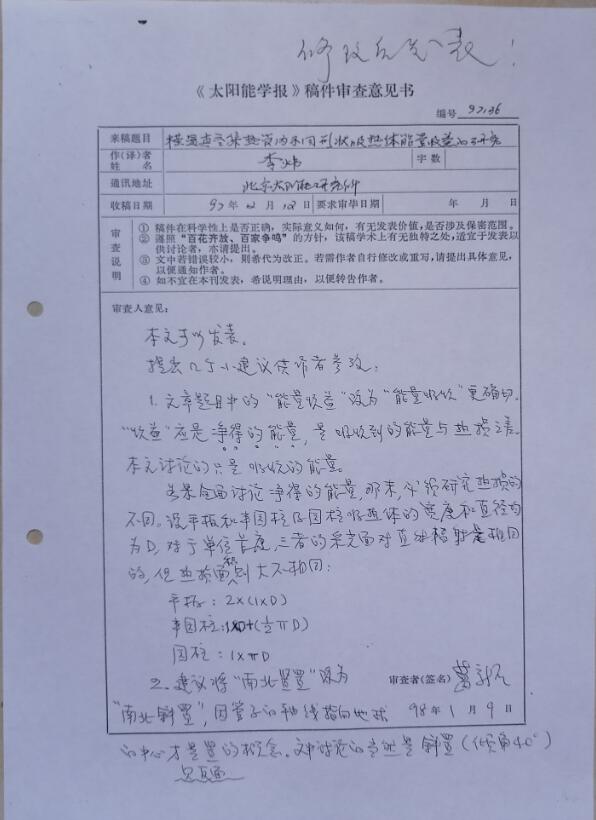 修改后发表!
《太阳能学报》稿件审查意见书
编号 97136
来稿题目 真空集热管内不同形状吸热体能量收益的研究
作(译)者姓名 李炜 字数
通讯地址 北京太阳能研究所
收稿日期 97年12月12日 要求审毕日期 年 月 日
审查说明
① 稿件在科学性上是否正确,实际意义如何,有无发表价值,是否涉及保密范围。
② 遵照“百花齐放、百家争鸣”的方针,该稿学术上有无独特之处,适宜于发表以
供讨论者,亦请提出。
③ 文中若错误较小,则希代为改正。若需作者自行修改或重写,请提出具体意见,
以便通知作者。
④ 如不宜在本刊发表,希说明理由,以便转告作者。
审查人意见:
本文可以发表。
提出几个小建议供作者参改:
1. 文章题目中的“能量收益”改为“能量吸收”更确切。
“收益”应是净得的能量,是吸收到的能量与热损之差。
本文讨论的只是吸收的能量。
如果全面讨论净得的能量,那末,必须研究热损的
不同。设平板和半圆柱及圆柱吸热体的宽度和直径均
为D,对于单位长度,三者的采光面对直射辐射是相同
的,但热损面积则大不相同:
平板:2×(1×D)
半圆柱:1×D+(½πD)
圆柱:1×πD
2. 建议将“南北竖置”改为
审查者(签名)
“南北斜置”,因管子的轴线指向地球
98年1月9日
的中心才是竖置的概念。文中讨论的当然是斜置(倾角40°)